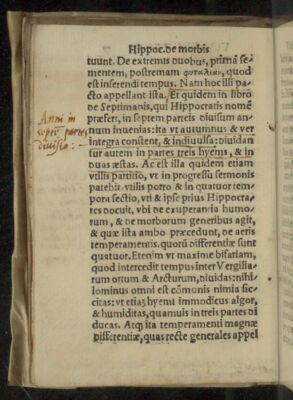 Hippoc. de morbis
tuunt. De extremis duobus, primã se⸗
mentem, postremam φυταλιαν, quod
est inserendi tempus. Nam hoc illi pa⸗
cto appellant ista. Et quidem in libro
de Septimanis, qui Hippocratis nomẽ
præfert, in septem parteis diuisum an⸗
num inuenias: ita vt autumnus & ver
integra constent, & indiuulsa: diuidan
tur autem in partes treis hyems, & in
duas æstas. Ac est illa quidem etiam
vtilis partitio, vt in progressu sermonis
patebit. vtilis porro & in quatuor tem⸗
pora sectio, vti & ipse prius Hippocra⸗
tes docuit, vbi de exuperantia humo⸗
rum, & de morborum generibus agit,
& quæ ista ambo præcedunt, de aeris
temperamentis. quorũ differentiæ sunt
quatuor. Etenim vt maxime bifariam,
quod intercedit tempus inter Vergilia⸗
rum ortum & Arcturum, diuidas: nihi⸗
lominus omni est cõmunis nimia sic⸗
citas: vt etiaʒ hyemi immodicus algor,
& humiditas, quamuis in treis partes di
ducas. Atqȝ ita temperamenti magnæ
differentiæ, quas recte generales appel
Anni in
septẽ partes
diuisio: